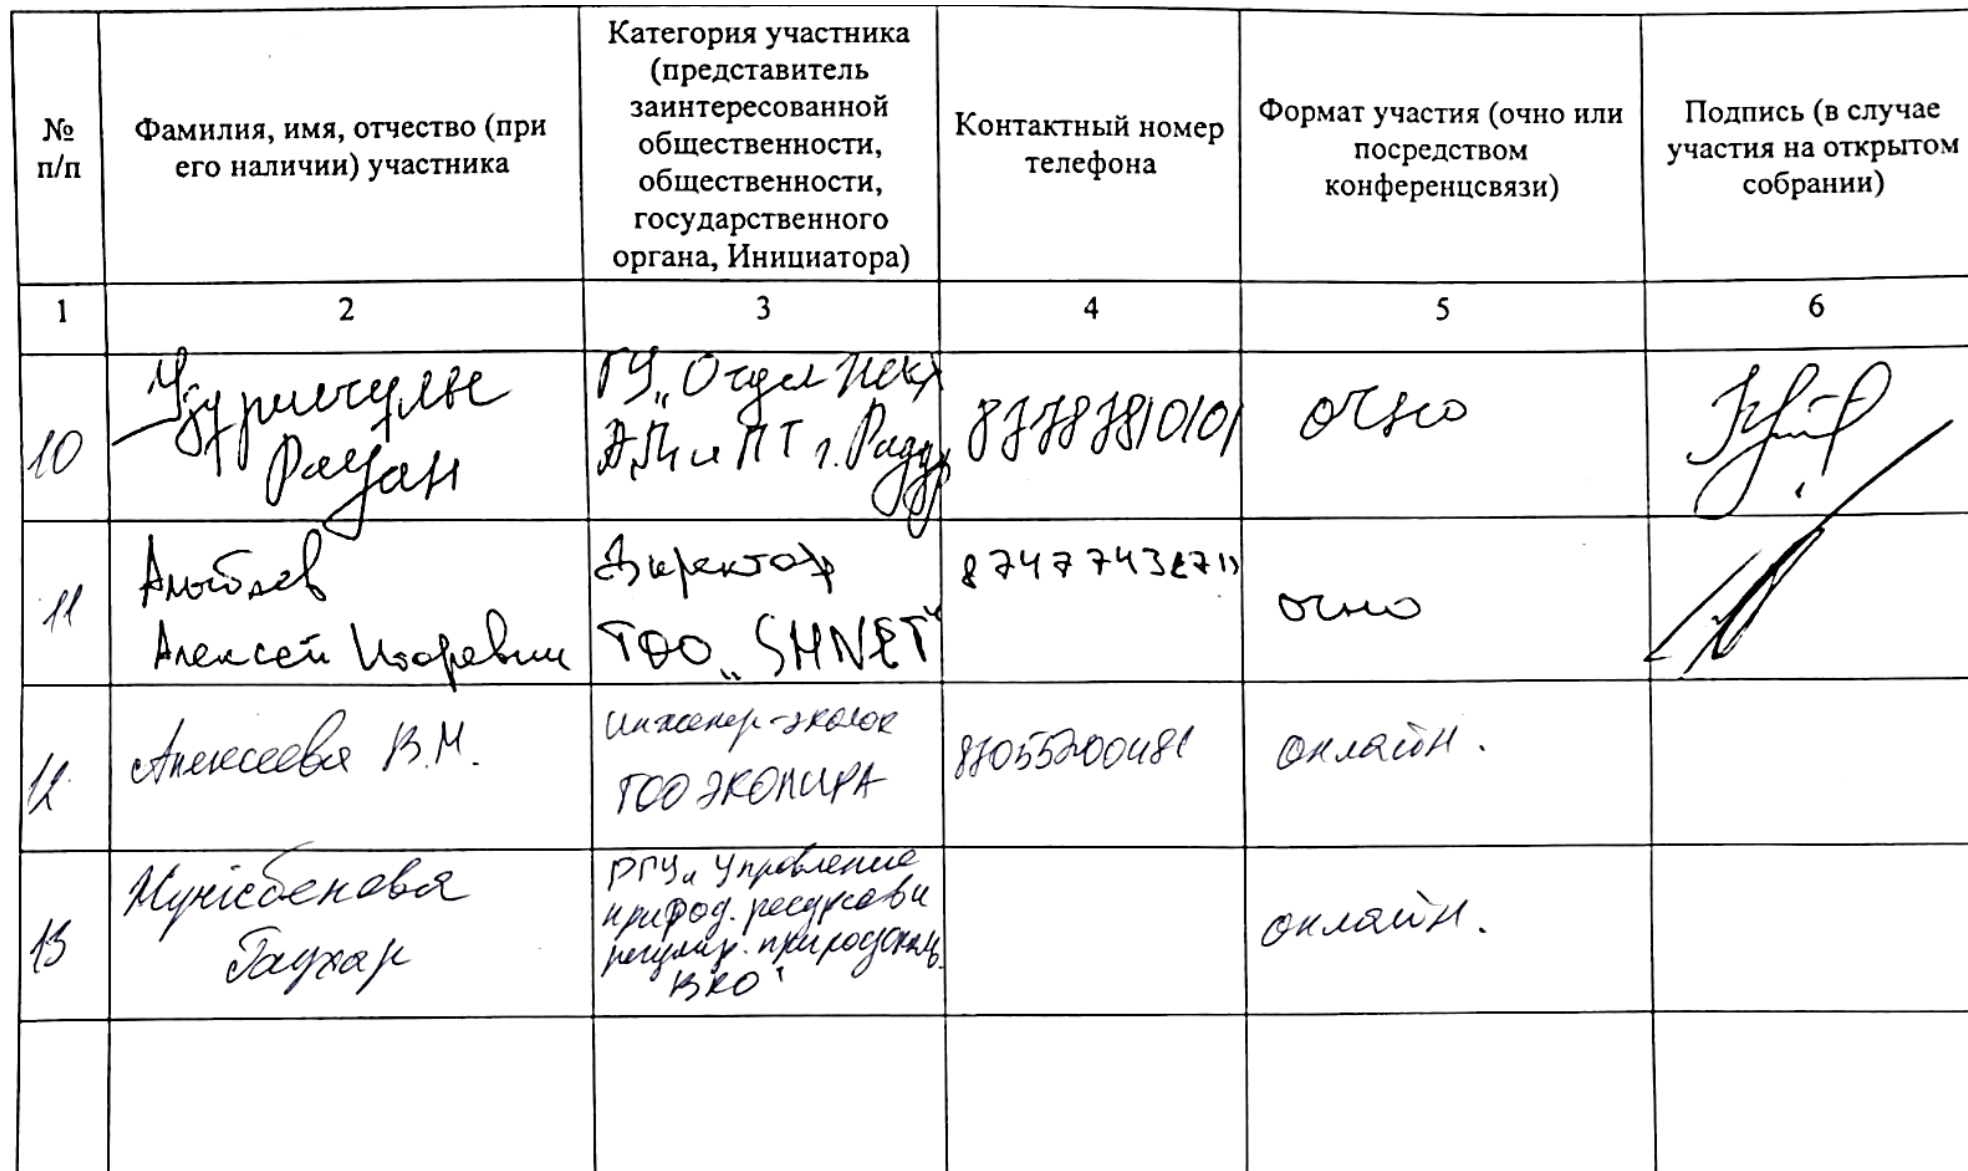 № п/п
Фамилия, имя, отчество (при
его наличии) участника
Категория участника
(представитель
заинтересованной
общественности,
общественности,
государственного
органа, Инициатора)
Контактный номер
телефона
Формат участия (очно или
посредством
конференцсвязи)
Подпись (в случае
участия на открытом
собрании)
1 2 3 4 5 6
10
Рауан
ГУ „Отдел
и ПТ г.
87787810101
очно
11
Алексей Игоревич
Директор
ТОО „SHNET“
очно
12
Алексеева В.М.
инженер-эколог
ТОО
онлайн.
13
Гаухар
РГУ „Управление
природ. ресурсов и
регулир.
ВКО"
онлайн.